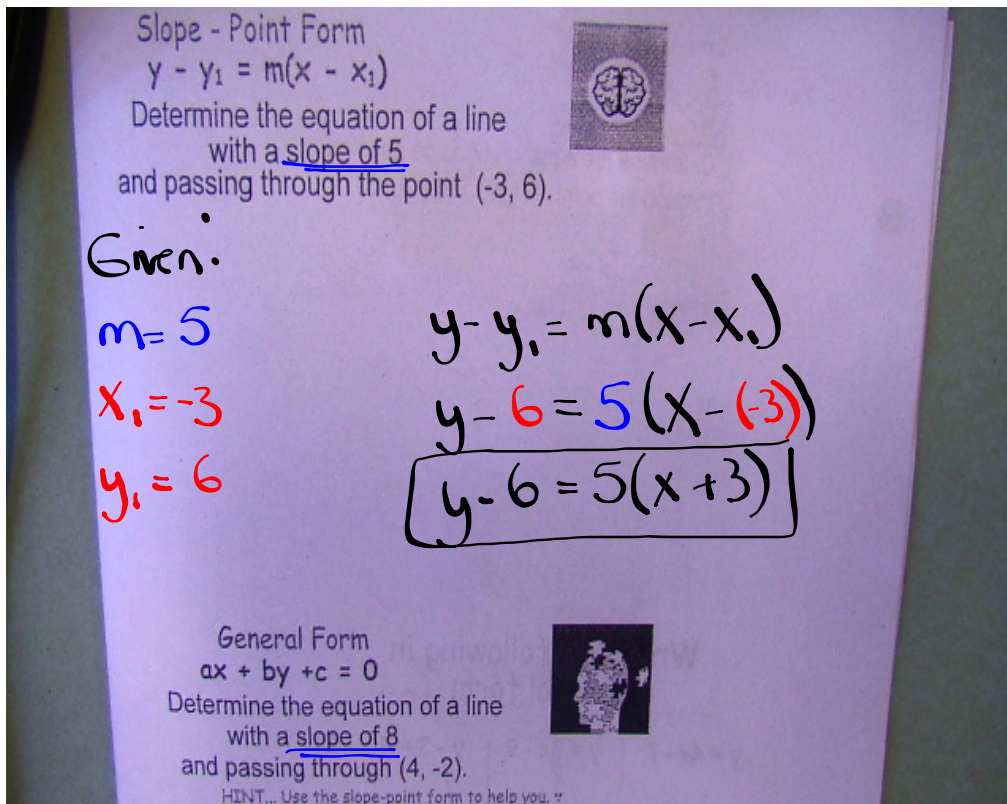 Slope - Point Form
y - y₁ = m(x - x₁)
Determine the equation of a line
with a slope of 5
and passing through the point (-3, 6).
Given:
m = 5
x₁ = -3
y₁ = 6
y - y₁ = m(x - x₁)
y - 6 = 5(x - (-3))
y - 6 = 5(x + 3)
General Form
ax + by +c = 0
Determine the equation of a line
with a slope of 8
and passing through (4, -2).
HINT... Use the slope-point form to help you.